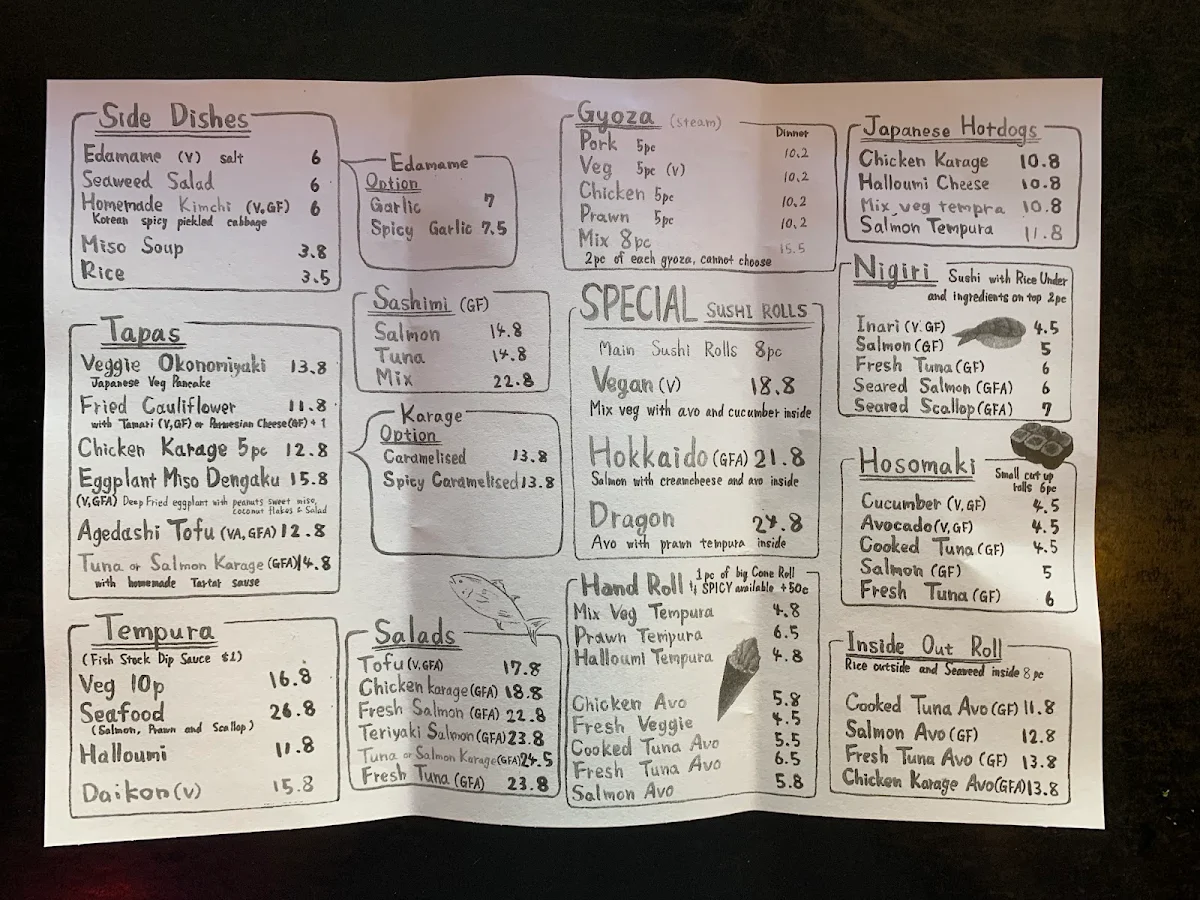 Side Dishes
Edamame (V) salt 6
Seaweed Salad 6
Homemade Kimchi (V.GF) 6
Korean spicy pickled cabbage
Miso Soup 3.8
Rice 3.5
Edamame
Option
Garlic 7
Spicy Garlic 7.5
Tapas
Veggie Okonomiyaki 13.8
Japanese Veg Pancake
Fried Cauliflower 11.8
with Tamari (V,GF) or Parmesian Cheese(GF) + 1
Chicken Karage 5pc 12.8
Eggplant Miso Dengaku 15.8
(V,GFA) Deep Fried eggplant with peanuts sweet miso,
coconut flakes & Salad
Agedashi Tofu (VA, GFA) 12.8
Tuna or Salmon Karage (GFA) 14.8
with homemade Tartar sause
Sashimi (GF)
Salmon 14.8
Tuna 14.8
Mix 22.8
Karage
Option
Caramelised 13.8
Spicy Caramelised 13.8
Tempura
(Fish Stock Dip Sauce $1)
Veg 10p 16.8
Seafood 26.8
(Salmon, Prawn and Scallop)
Halloumi 11.8
Daikon (V) 15.8
Salads
Tofu (V, GFA) 17.8
Chicken karage (GFA) 18.8
Fresh Salmon (GFA) 22.8
Teriyaki Salmon (GFA) 23.8
Tuna or Salmon Karage (GFA) 24.5
Fresh Tuna (GFA) 23.8
Gyoza (steam)
Dinner
Pork 5pc 10.2
Veg 5pc (V) 10.2
Chicken 5pc 10.2
Prawn 5pc 10.2
Mix 8pc 15.5
2pc of each gyoza, cannot choose
SPECIAL SUSHI ROLLS
Main Sushi Rolls 8pc
Vegan (V) 18.8
Mix veg with avo and cucumber inside
Hokkaido (GFA) 21.8
Salmon with creamcheese and avo inside
Dragon 24.8
Avo with prawn tempura inside
Hand Roll 1pc of big Cone Roll
SPICY available +50c
Mix Veg Tempura 4.8
Prawn Tempura 6.5
Halloumi Tempura 4.8
Chicken Avo 5.8
Fresh Veggie 4.5
Cooked Tuna Avo 5.5
Fresh Tuna Avo 6.5
Salmon Avo 5.8
Japanese Hotdogs
Chicken Karage 10.8
Halloumi Cheese 10.8
Mix veg tempra 10.8
Salmon Tempura 11.8
Nigiri Sushi with Rice Under
and ingredients on top 2pc
Inari (V.GF) 4.5
Salmon (GF) 5
Fresh Tuna (GF) 6
Seared Salmon (GFA) 6
Seared Scallop (GFA) 7
Hosomaki Small cut up
rolls 6pc
Cucumber (V, GF) 4.5
Avocado (V, GF) 4.5
Cooked Tuna (GF) 4.5
Salmon (GF) 5
Fresh Tuna (GF) 6
Inside Out Roll
Rice outside and Seaweed inside 8 pc
Cooked Tuna Avo (GF) 11.8
Salmon Avo (GF) 12.8
Fresh Tuna Avo (GF) 13.8
Chicken Karage Avo (GFA) 13.8